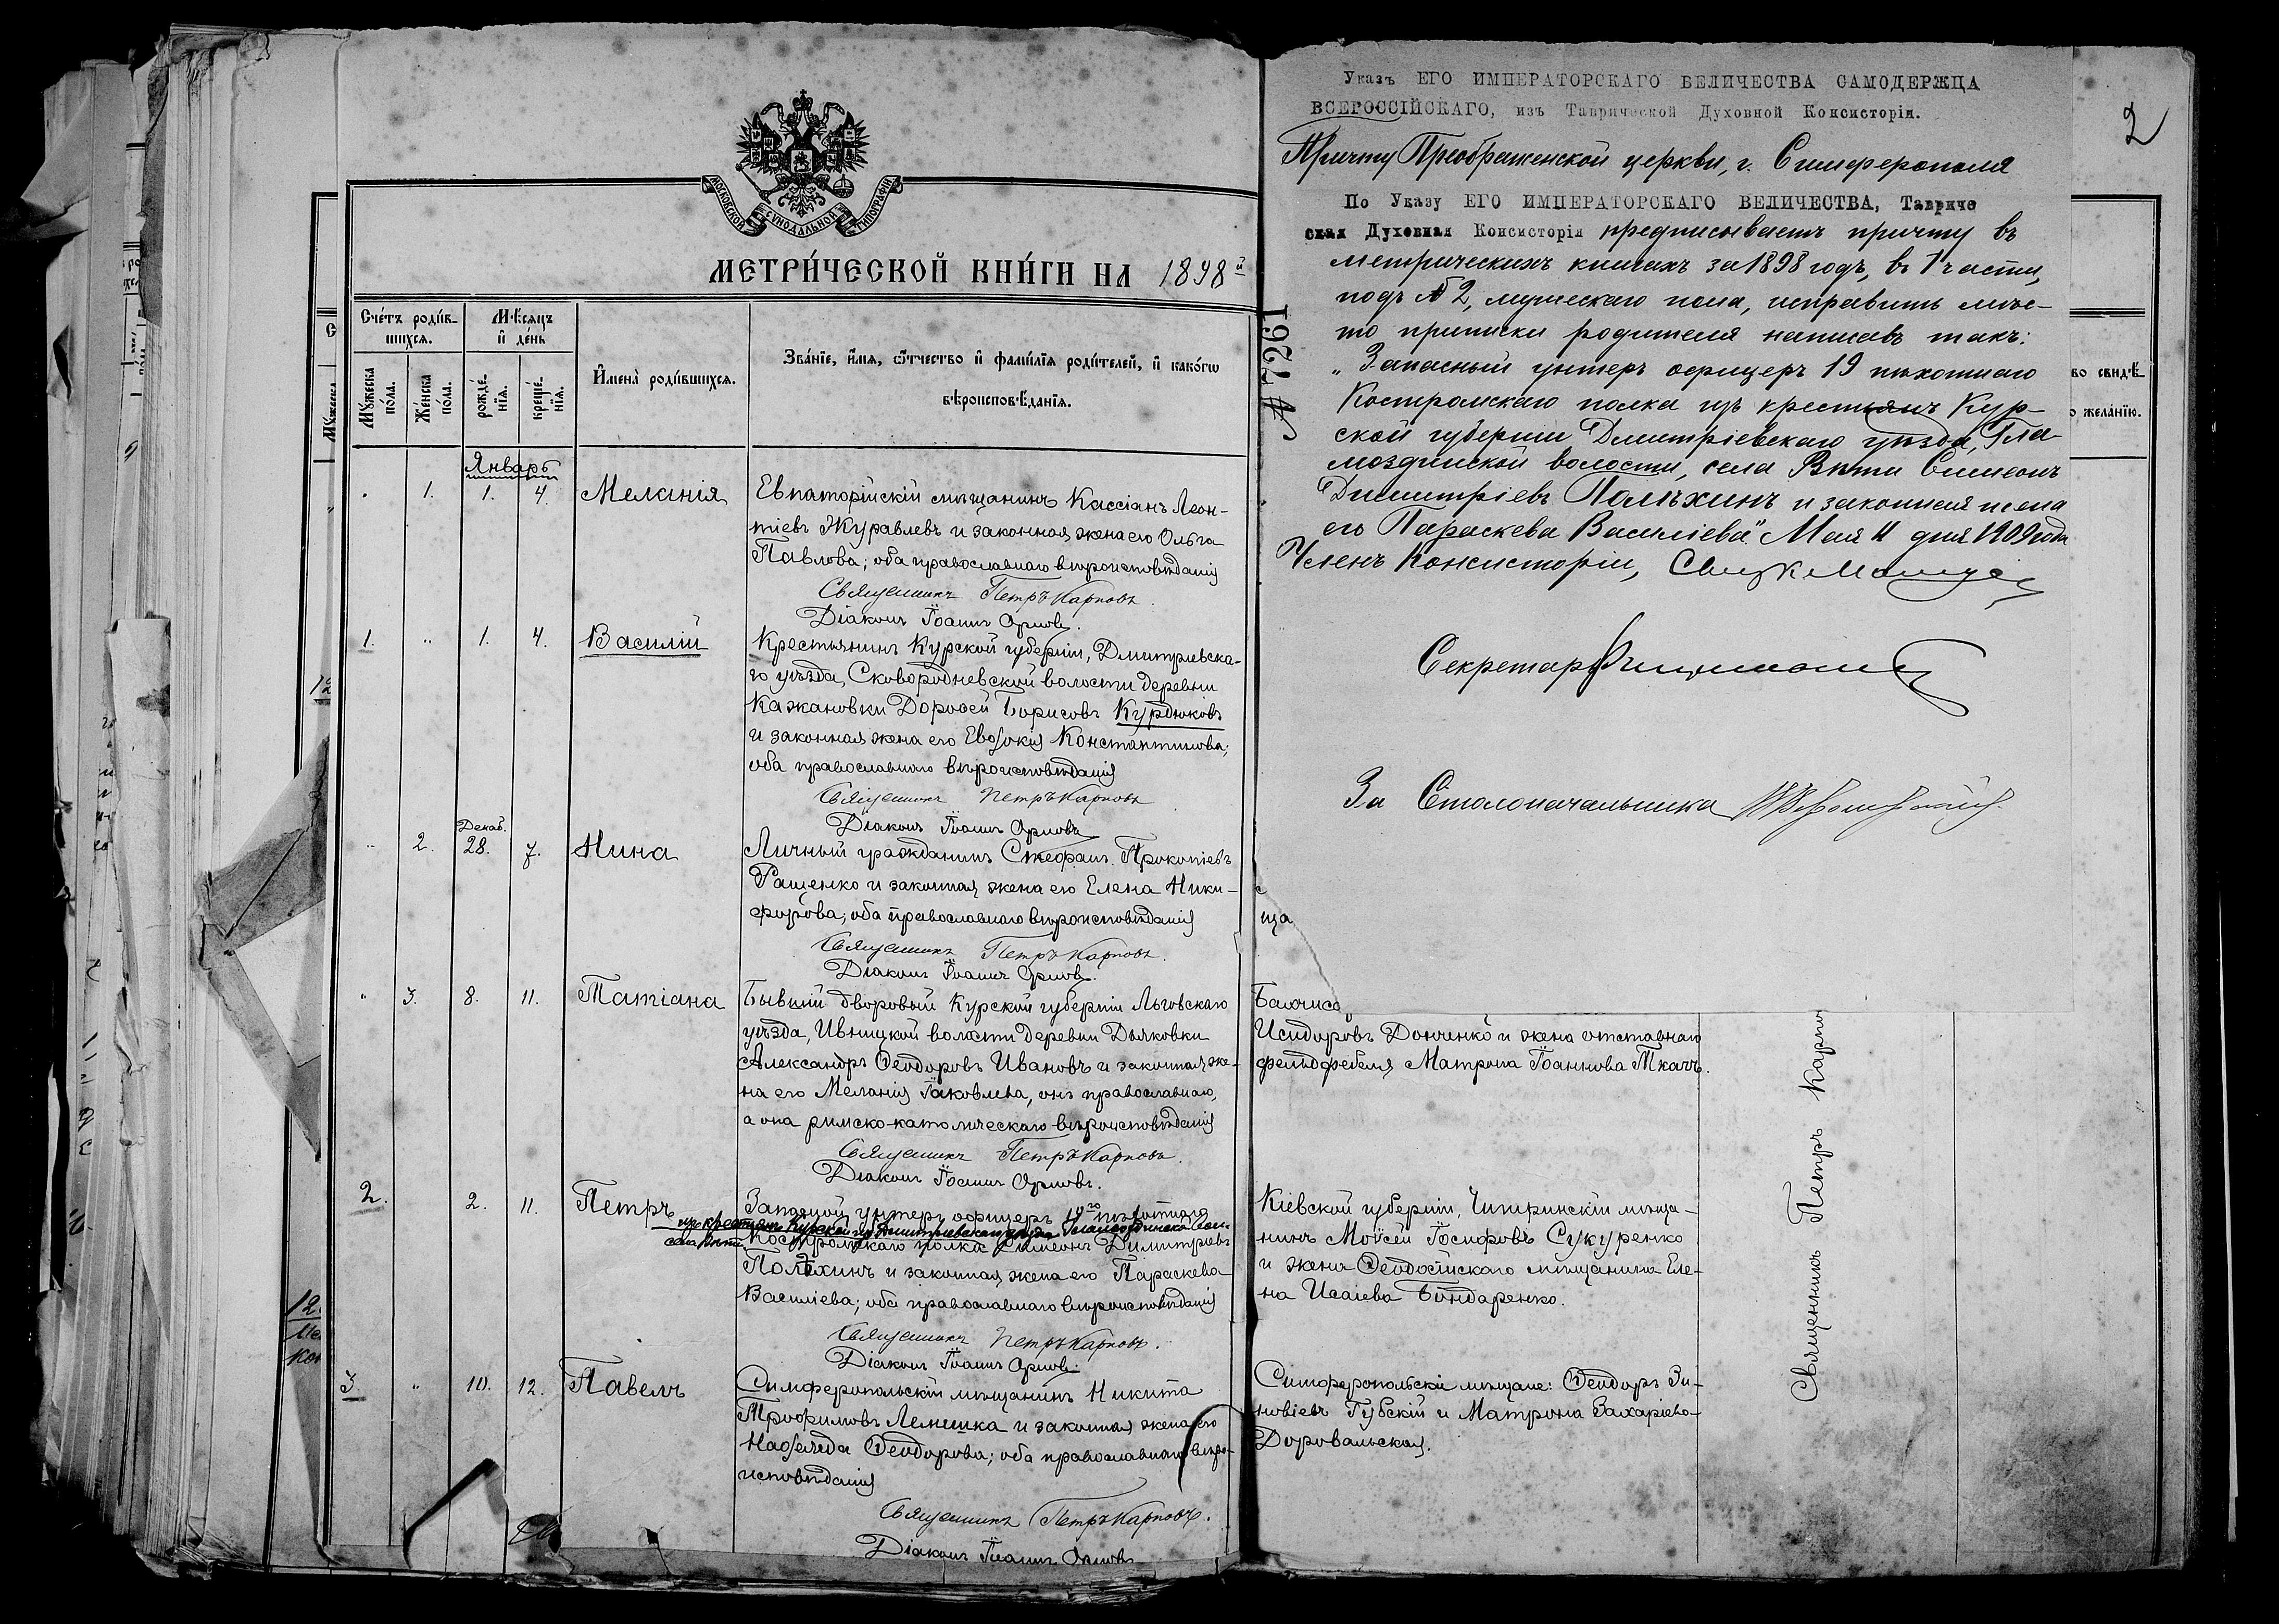 МОСКОВСКОЙ СѴНОДАЛЬНОЙ ТИПОГРАФІИ
МЕТРИ́ЧЕСКОЙ КНИ́ГИ НА 1898й
Сче́тъ роди́в-
шихся.
Мѣ́сяцъ
и҆ де́нь
И҆мена̀ роди́вшихся.
Зва́нїе, и҆́мя, ѻ҆́тчество и҆ фами́лїя роди́телей, и҆ како́гѡ
вѣроисповѣ́данїя.
Мꙋ́жеска
по́ла.
Же́нска
по́ла.
рожде́-
нїя.
креще́-
нїя.
Январь
1. 1. 4. Меланія
Евпаторійскій мѣщанинъ Кассіанъ Леон-
тіевъ Журавлевъ и законная жена его Ольга
Павлова; оба православнаго вѣроисповѣданія
Священникъ Петръ Карповъ.
Діаконъ Іоаннъ Орловъ.
1. " 1. 4. Василій
Крестьянинъ Курской губерніи, Дмитріевска-
го уѣзда, Сковородневской волости деревни
Кажановки Дороѳей Борисовъ Курдюковъ
и законная жена его Евдокія Константинова;
оба православнаго вѣроисповѣданія
Священникъ Петръ Карповъ
Діаконъ Іоаннъ Орловъ
Декаб.
" 2. 28. 7. Нина
Личный гражданинъ Стефанъ Прокопіевъ
Ращенко и законная жена его Елена Ники-
форова; оба православнаго вѣроисповѣданія
Священникъ Петръ Карповъ.
Діаконъ Іоаннъ Орловъ.
" 3. 8. 11. Татіана
Бывшій дворовый Курской губерніи Льговскаго
уѣзда, Ивницкой волости деревни Дьяковки
Александръ Ѳеодоровъ Ивановъ и законная же-
на его Меланія Іаковлева, онъ православнаго,
а она римско-католическаго вѣроисповѣданія
Священникъ Петръ Карповъ.
Діаконъ Іоаннъ Орловъ.
2. 2. 11. Петръ
Запасной унтеръ офицеръ 19го пѣхотнаго
изъ крестьянъ Курской губ. Дмитріевскаго уѣзда Гламоздинской вол.
села Вѣти
Костромскаго полка Симеонъ Димитріевъ
Полѣхинъ и законная жена его Параскева
Василіева; оба православнаго вѣроисповѣданія
Священникъ Петръ Карповъ.
Діаконъ Іоаннъ Орловъ.
3 " 10. 12. Павелъ
Симферопольскій мѣщанинъ Никита
Трофимовъ Лемешка и законная жена его
Надежда Ѳеодорова; оба православнаго вѣро-
исповѣданія
Священникъ Петръ Карповъ.
Діаконъ Іоаннъ Орловъ
Указъ ЕГО ИМПЕРАТОРСКАГО ВЕЛИЧЕСТВА САМОДЕРЖЦА
ВСЕРОССІЙСКАГО, изъ Таврической Духовной Консисторіи.
2
Причту Преображенской церкви, г. Симферополя
По Указу ЕГО ИМПЕРАТОРСКАГО ВЕЛИЧЕСТВА, Тавриче
ская Духовная Консисторія предписываетъ причту въ
метрическихъ книгахъ за 1898 годъ, въ 1 части,
подъ № 2, мужескаго пола, исправить мѣс-
то приписки родителя написавъ такъ:
"Запасный унтеръ офицеръ 19 пѣхотнаго
Костромскаго полка изъ крестьянъ Кур-
ской губерніи Дмитріевскаго уѣзда, Гла-
моздинской волости, села Вѣти Симеонъ
Димитріевъ Полѣхинъ и законная жена
его Параскева Василіева". Мая 11 дня 1909 года
Членъ Консисторіи,
Секретарь
За Столоначальника
№ 7261
во свидѣ-
жела́нїю.
ща
Исидоровъ Донченко и жена отставнаго
фельдфебеля Матрона Іоаннова Ткачъ.
Кіевской губерніи, Чигринскій мѣща-
нинъ Моѵсей Іосифовъ Сукуренко
и жена Ѳеодосійскаго мѣщанина Еле-
на Исаіева Бондаренко.
Симферопольскіе мѣщане: Ѳеодоръ Зи-
новіевъ Губскій и Матрона Захаріева
Доровальская.
Священникъ Петръ Карпо